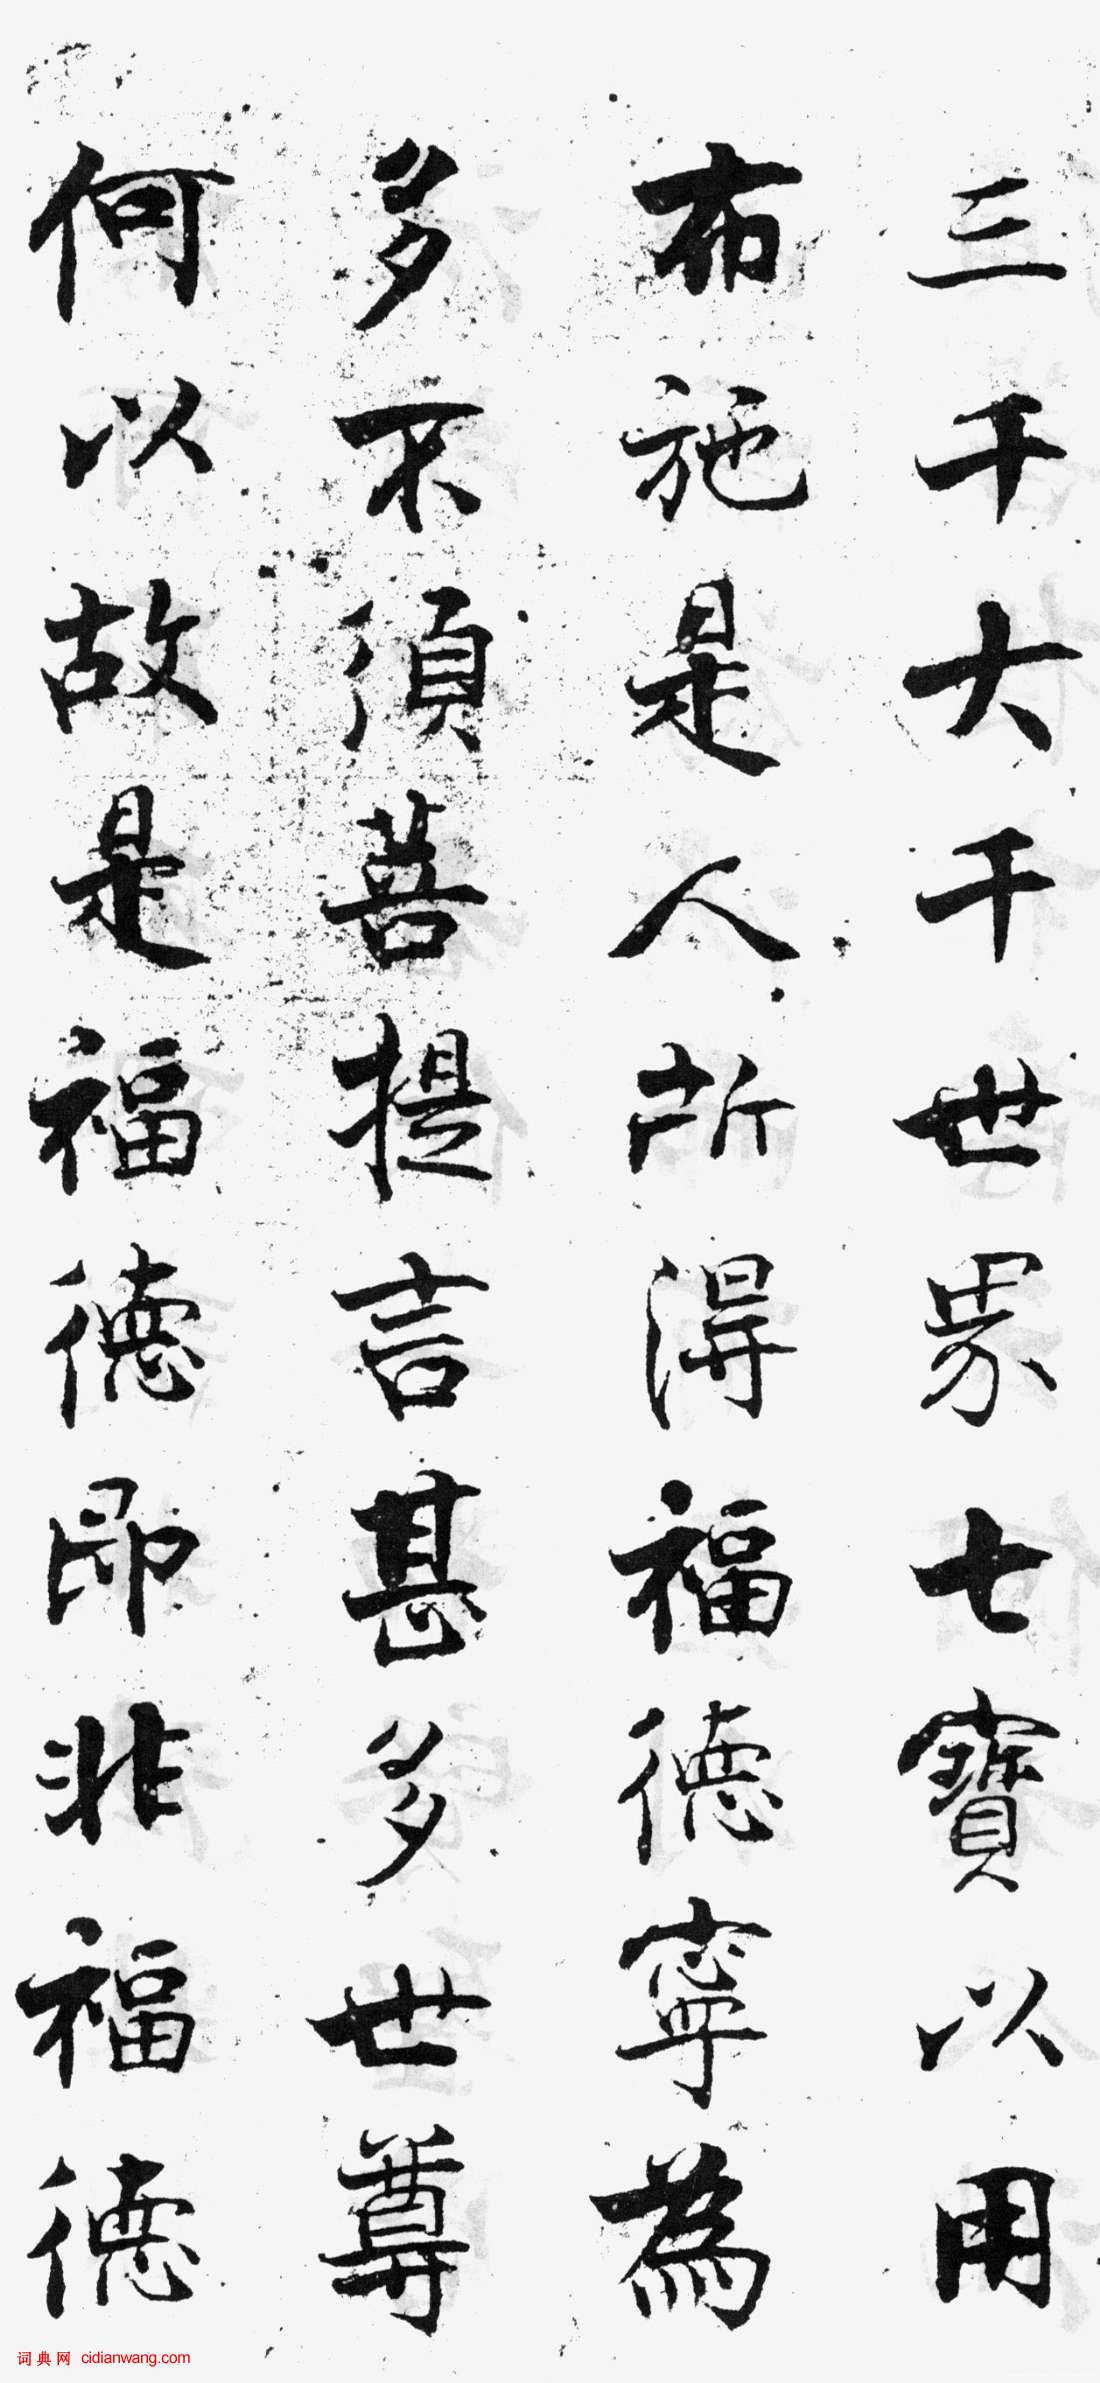 三千大千世界七寶以用
布施是人所得福德寧為
多不須菩提言甚多世尊
何以故是福德即非福德
词典网 cidianwang.com